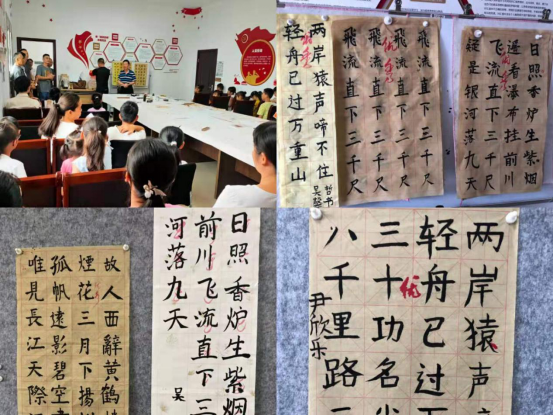 两岸猿声啼不住
轻舟已过万重山
飛流直下三千尺
飛流直下三千尺
飛流直下三千尺
飛流直下三千尺
优秀
日照香炉生紫烟
遥看瀑布挂前川
飞流直下三千尺
疑是银河落九天
故人西辭黄鹤
煙花三月下揚
孤帆遠影碧空
唯見長江天際
日照香炉生紫烟
前川飞流直下三
河落九天
吴
两岸猿声
轻舟已过
三十功名
八千里路
优
尹欣乐